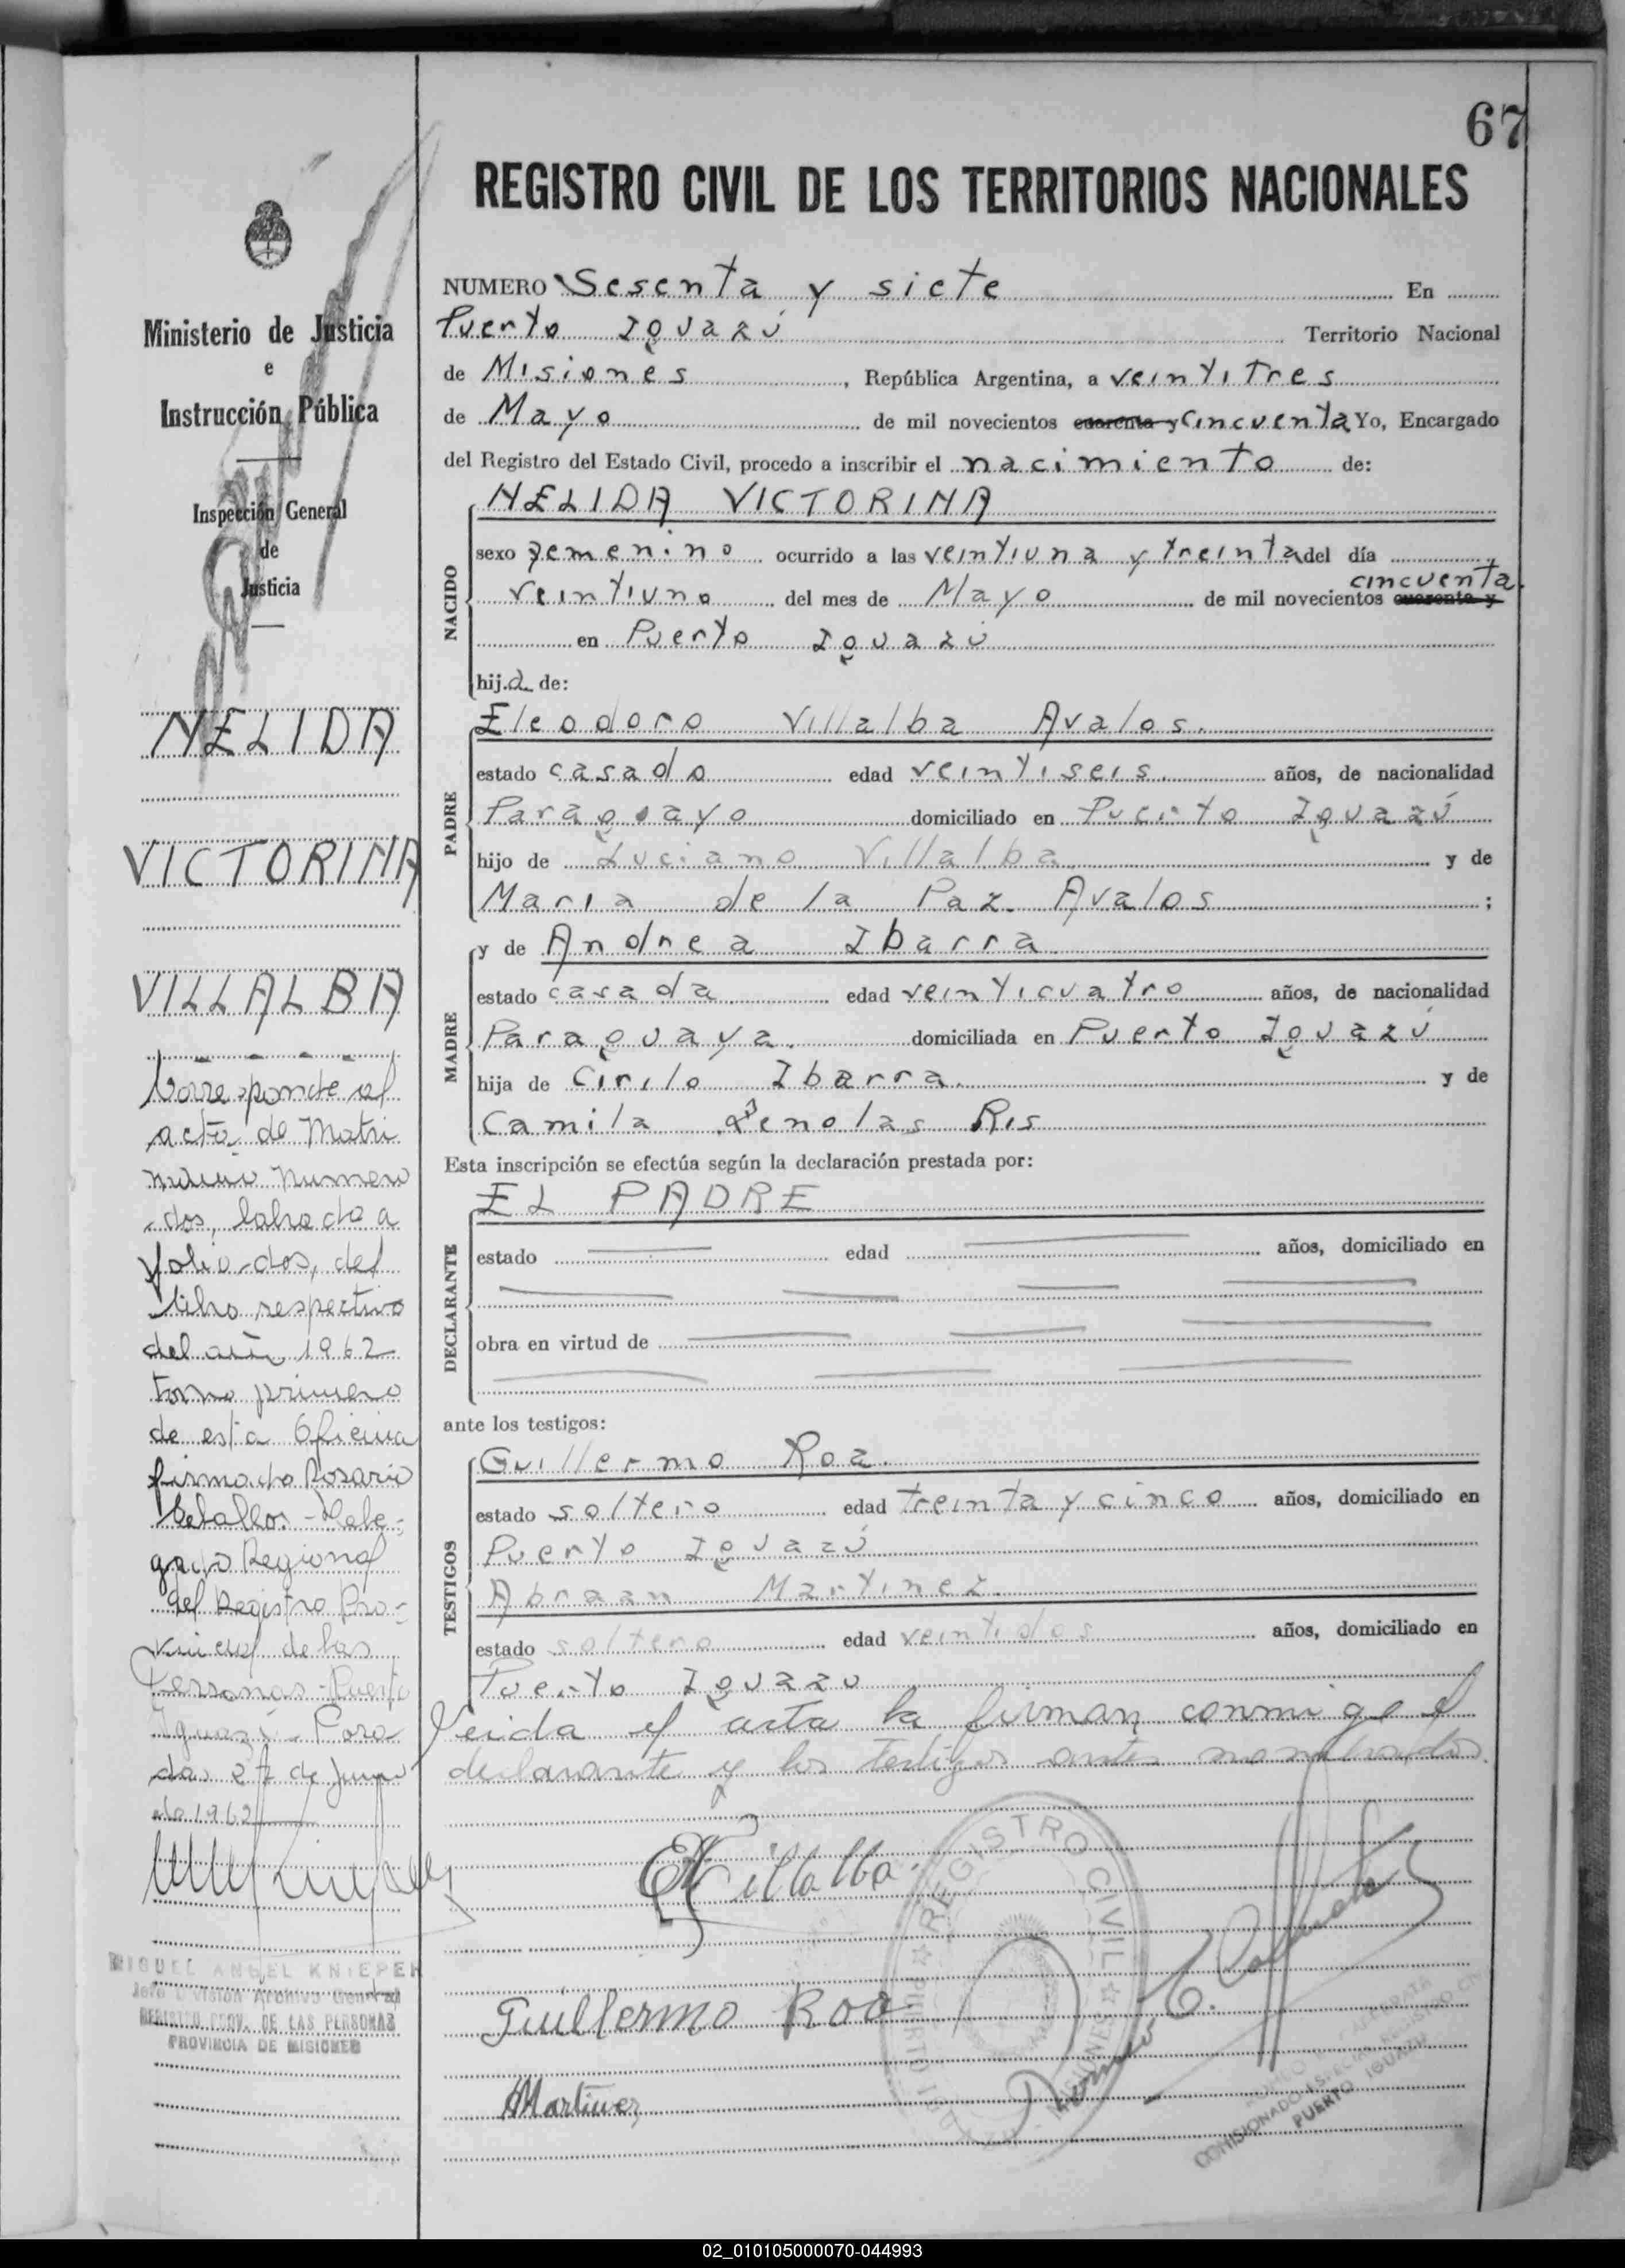 67
REGISTRO CIVIL DE LOS TERRITORIOS NACIONALES
Ministerio de Justicia
e
Instrucción Pública
Inspección General
de
Justicia
NELIDA
VICTORINA
VILLALBA
Corresponde al
acta de Matri
monio numero
dos, labrada a
folio dos, del
libro respectivo
del año 1962
tomo primero
de esta Oficina
firmado Rosario
Ceballos - Dele-
gado Regional
del Registro Pro-
vincial de las
Personas - Puerto
Iguazú - Posa
das 27 de Junio
de 1962
MIGUEL ANGEL KNIEPER
Jefe División Archivo General
REGISTRO PROV. DE LAS PERSONAS
PROVINCIA DE MISIONES
NUMERO Sesenta y siete En
Puerto Iguazú Territorio Nacional
de Misiones, República Argentina, a veintitres
de Mayo de mil novecientos cuarenta y cincuenta Yo, Encargado
del Registro del Estado Civil, procedo a inscribir el nacimiento de:
NACIDO
NELIDA VICTORINA
sexo femenino ocurrido a las veintiuna y treinta del día
veintiuno del mes de Mayo de mil novecientos cuarenta y cincuenta.
en Puerto Iguazú
hija de:
PADRE
Eleodoro Villalba Avalos.
estado casado edad veintiseis. años, de nacionalidad
Paraguayo domiciliado en Puerto Iguazú
hijo de Luciano Villalba y de
Maria de la Paz Avalos ;
MADRE
y de Andrea Ibarra
estado casada edad veinticuatro años, de nacionalidad
Paraguaya. domiciliada en Puerto Iguazú
hija de Cirilo Ibarra. y de
Camila Ris
Esta inscripción se efectúa según la declaración prestada por:
DECLARANTE
EL PADRE
estado edad años, domiciliado en
obra en virtud de
ante los testigos:
TESTIGOS
Guillermo Roa.
estado soltero edad treinta y cinco años, domiciliado en
Puerto Iguazú
Abraan Martinez.
estado soltero edad veintidos años, domiciliado en
Puerto Iguazu
Leida el acta la firman conmigo el
declarante y los testigos antes nombrados.
EVillalba.
Guillermo Roa
AMartinez
REGISTRO CIVIL
MISIONES
COMISIONADO ESPECIAL REGISTRO CIVIL
PUERTO IGUAZU
02_010105000070-044993